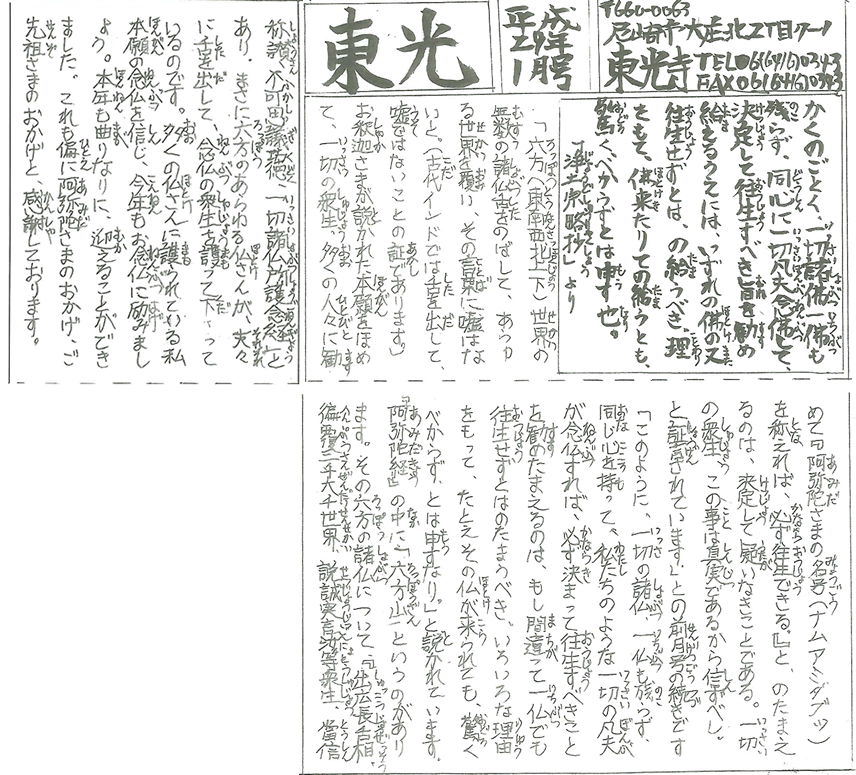 〒660-0063
尼崎市大庄北2丁目7-1
東光寺 TEL06(6416)0343
FAX06(6416)0343
平成
29年
1月号
東光
かくのごとく、一切諸佛一佛も
残らず、同心に一切凡夫念佛して、
決定して往生すべき旨を勧め
給えるうえには、いずれの佛の又
往生せずとは、の給うべき、理
をもて、佛来たりての給うとも、
驚くべからずとは申す也。
『浄土宗略抄』より
「六方(東南西北上下)世界の
無数の諸仏舌をのばして、あらゆ
る世界を覆い、その言葉に嘘はな
いと。(古代インドでは舌を出して、
嘘ではないことの証であります。)
お釈迦さまが説かれた本願をほめ
て、一切の衆生、多くの人々に勧
めて『阿弥陀さまの名号(ナムアミダブツ)
を称えれば、必ず往生できる。』と、のたまえ
るのは、決定して疑いなきことである。一切
の衆生、この事は真実であるから信すべし。
と証言されています。」との前月号の続きです
「このように、一切の諸仏、一仏も残らず、
同じ心を持って、私たちのような一切の凡夫
が念仏すれば、必ず決まって往生すべきこと
を勧めたまえるのは、もし間違って一仏でも
往生せずとはのたまうべき、いろいろな理由
をもって、たとえその仏が来られても、驚く
べからず、とは申すなり。」と説かれています。
『阿弥陀経』の中に「六方山」というのがあり
ます。その六方の諸仏について、「出広長舌相、
徧覆三千大千世界、説誠実言汝等衆生、當信
称讃、不可思議功徳、一切諸仏所護念経」と
あり、まさに六方のあらゆる仏さんが、夫々
に舌を出して、念仏の衆生を護って下さって
いるのです。多くの仏さんに護られている私
本願の念仏を信じ、今年もお念仏に励みまし
ょう。本年も曲りなりに、迎えることができ
ました。これも偏に阿弥陀さまのおかげ、ご
先祖さまのおかげと感謝しております。